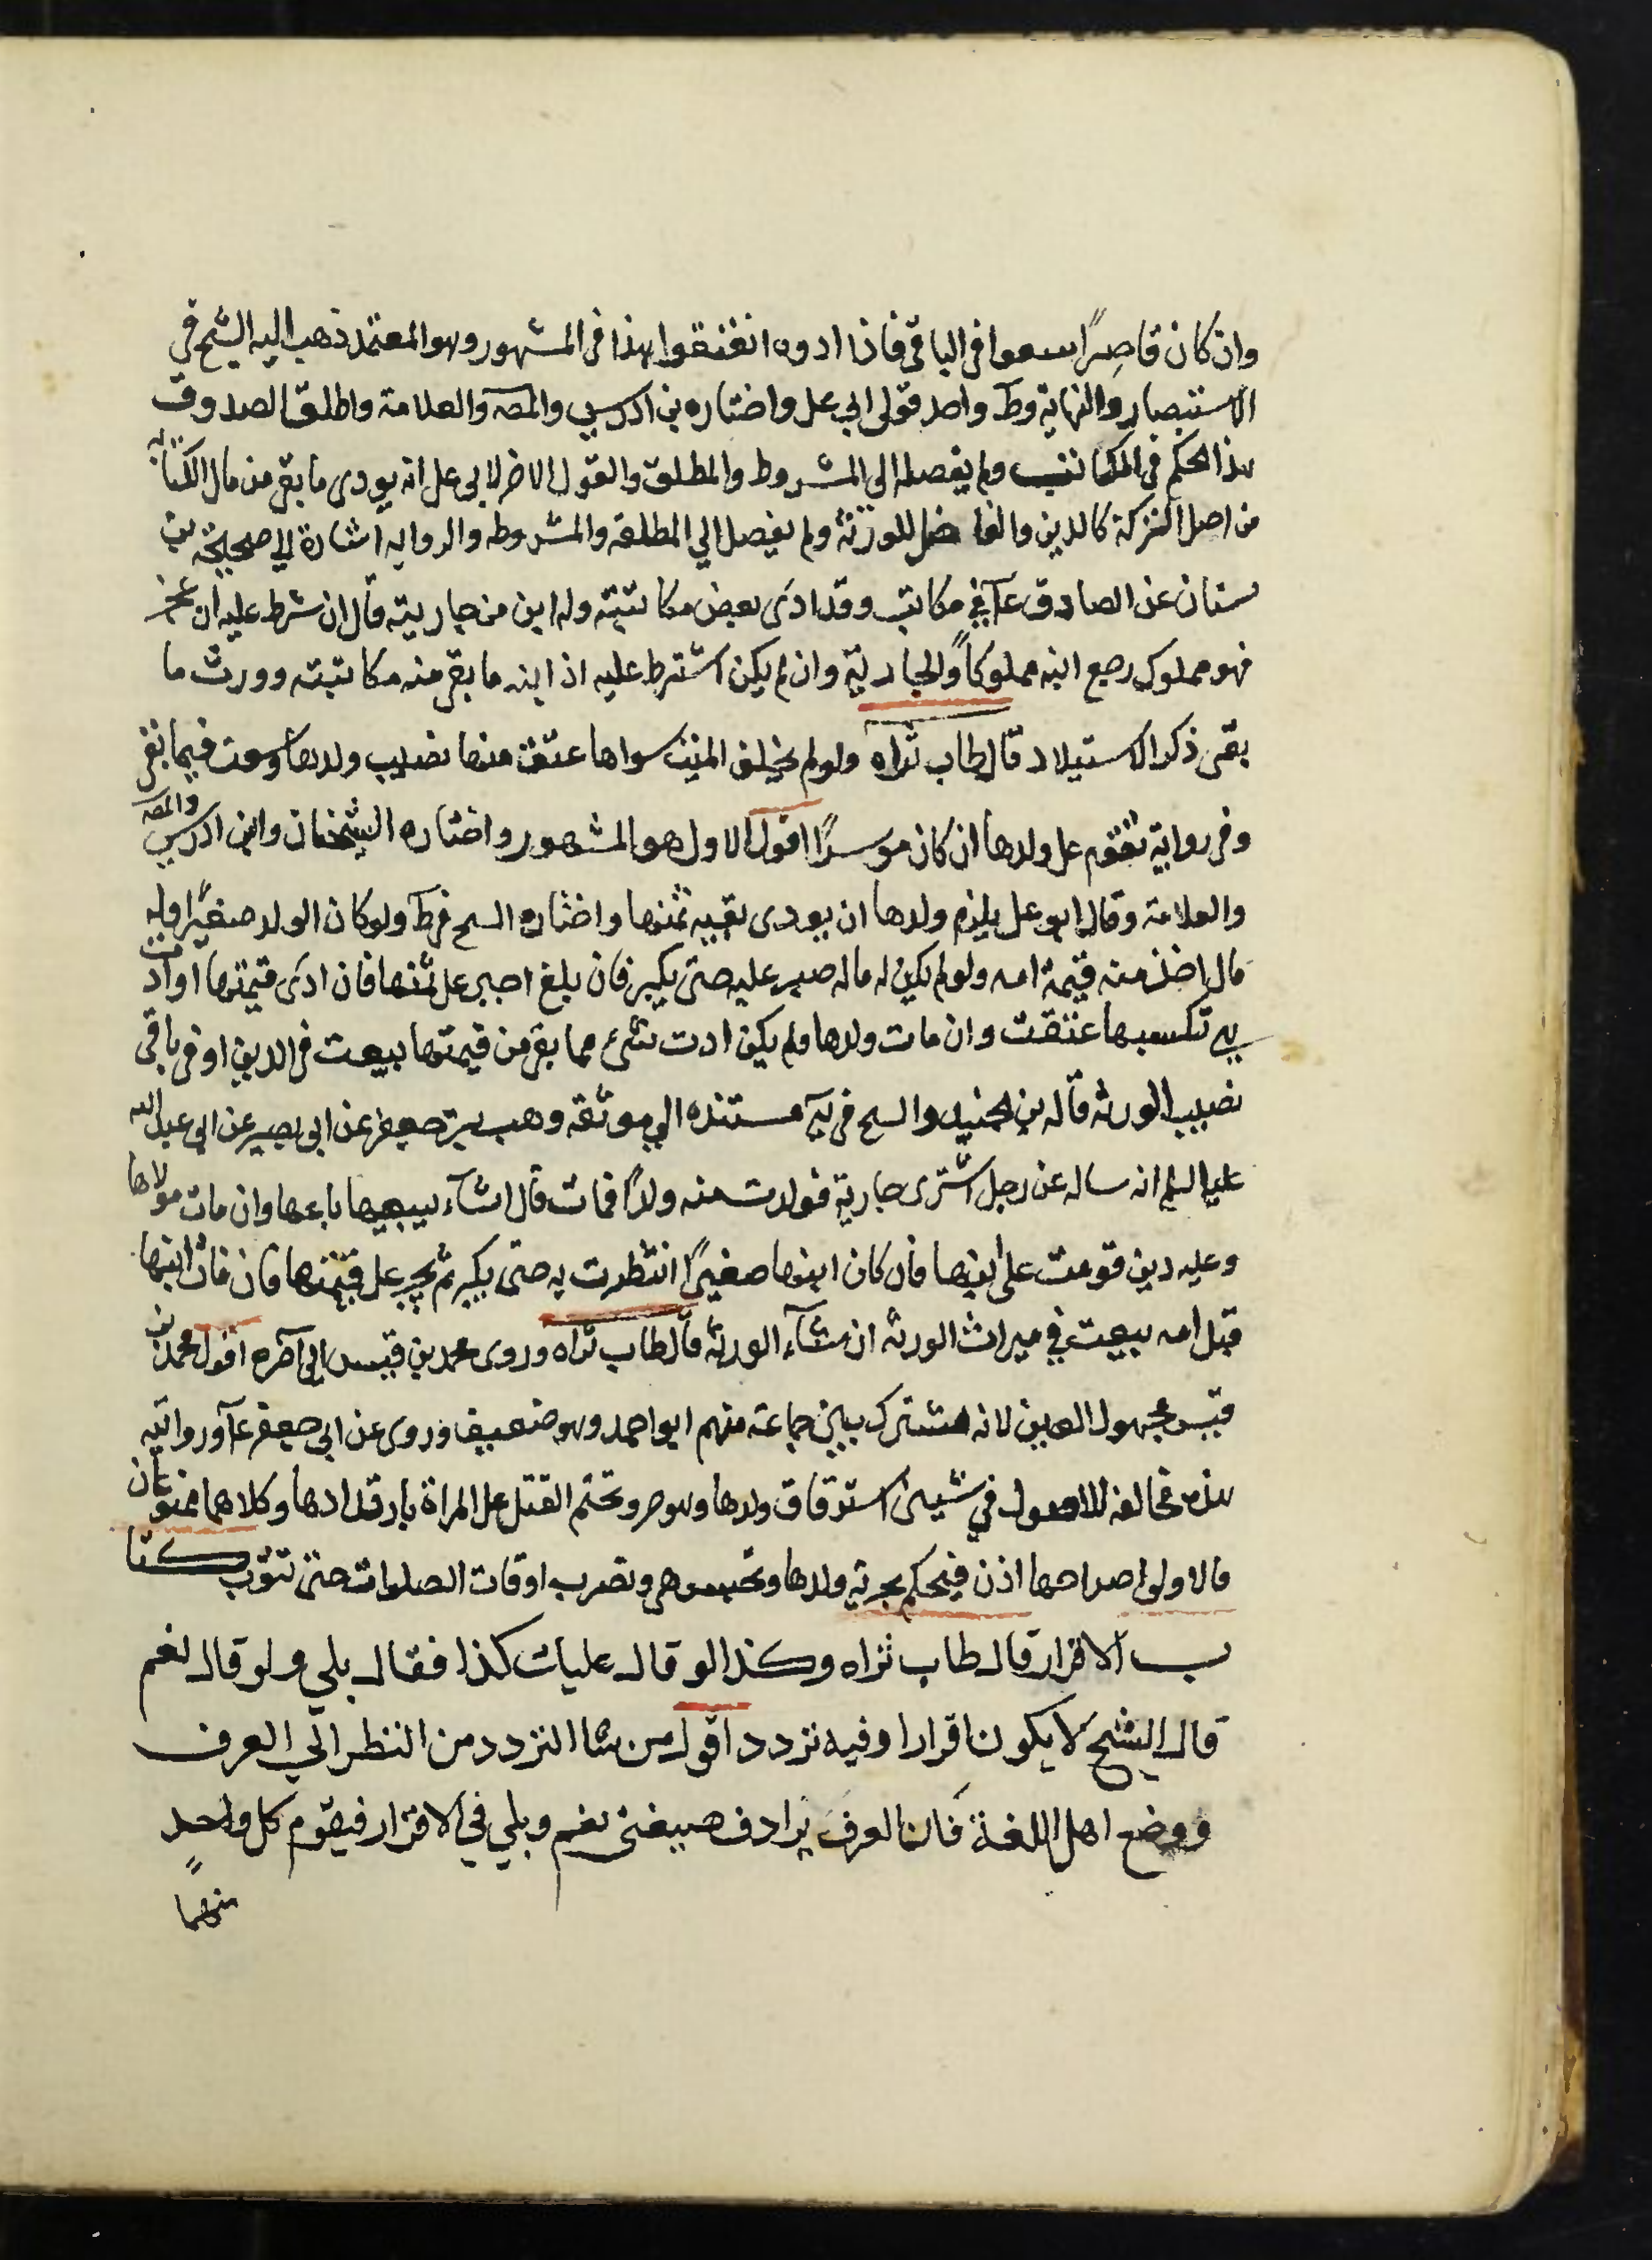 وان كان قاصرًا سعوا فى الباقى فاذا ادوه انعتقوا هذا فى المشهور وهو المعتمد ذهب اليه الشيخ في
الاستبصار والنهاية وط واحد قولى ابي على واختاره بن ادريس والمصه والعلامة واطلق الصدوق
هذا الحكم فى المكاتب ولم يفصله الى المشروط والمطلق والقول الاخر لابى على انه يودى ما بقى من مال الكتابه
من اصل التركة كالدين والفاضل للورثة ولم يفصل الي المطلقه والمشروطه والروايه اشارة الى صحيحة بن
سنان عن الصادق عآ في مكاتب وقد ادى بعض مكاتبته وله ابن من جاريته قال ان شرط عليه ان عجز
فهو مملوك رجع ابنه مملوكاً والجارية وان لم يكن اشترط عليه ادا ابنه ما بقى من مكاتبته وورث ما
بقى ذكر الاستيلاد قال طاب ثراه ولو لم يخلف الميت سواها عتق منها نصيب ولدها وسعت فيما بقى
وفى رواية تقوم على ولدها ان كان موسرًا اقول الاول هو المشهور واختاره الشيخان وابن ادريس والمصه
والعلامة وقال ابو على يلزم ولدها ان يودى بقيه ثمنها واختاره الشيخ فى ط ولو كان الولد صغيرًا وله
مال اخذ منه قيمة امه ولو لم يكن له مال صبر عليه حتى يكبر فان بلغ اجبر على ثمنها فان ادى قيمتها او ادت
هي تكسبها عتقت وان مات ولدها ولم يكن ادت شئ مما بقى من قيمتها بيعت فى الدين او فى باقى
نصيب الورثه قاله بن الجنيد والشيخ فى يه مستنده الي موثقه وهب بن جعفر عن ابى بصير عن ابي عبدالله
عليه السلم انه ساله عن رجل اشترى جارية فولدت منه ولدًا فمات قال ان شآء يبيعها باعها وان مات مولاها
وعليه دين قومت على ابنها فان كان ابنها صغيرًا انتظرت به حتى يكبر ثم يجبر على قيمتها فان مات ابنها
قبل امه بيعت في ميراث الورثه ان شآء الورثه قال طاب ثراه وروى محمد بن قيس الى آخره اقول محمد بن
قيس مجهول العين لانه مشترك بين جماعة منهم ابواحمد وهو ضعيف وروى عن ابي جعفر عآ وروايته
هذه مخالفه للاصول في شيئين استرقاق ولدها وهو حر وتحتم القتل على المراة بارتدادها وكلاهما ممنوعان
فالاولى اصراحها اذن فيحكم بحرية ولدها وتحبس هى وتضرب اوقات الصلوات حتى تتوب كتا
ب الاقرار قال طاب ثراه وكذا لو قال عليك كذا فقال بلي ولو قال نعم
قال الشيخ لا يكون اقرارا وفيه تردد اقول منشا التردد من النظر الي العرف
ووضع اهل اللغة فان العرف يرادف صيغتى نعم وبلي في الاقرار فيقوم كل واحدٍ
منهما